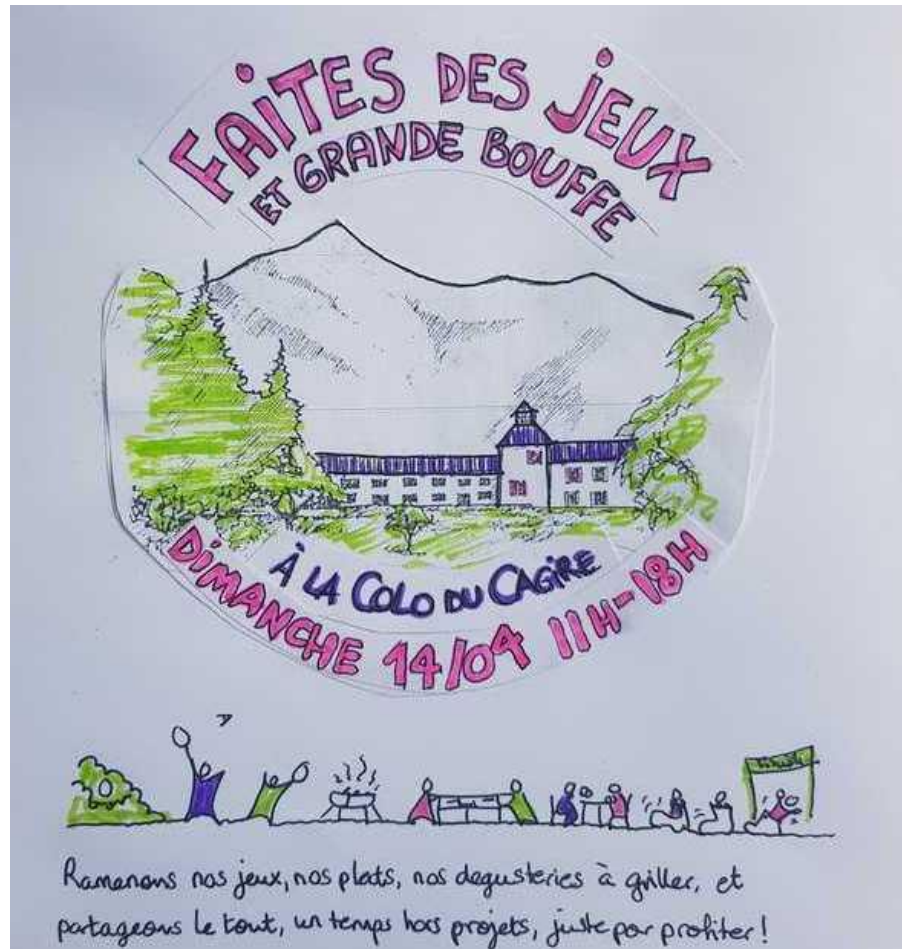 FAITES DES JEUX
ET GRANDE BOUFFE
À LA COLO DU CAGIRE
DIMANCHE 14/04 11H-18H
Ramenons nos jeux, nos plats, nos degusteries à griller, et
partageons le tout, un temps hors projets, juste por profiter!